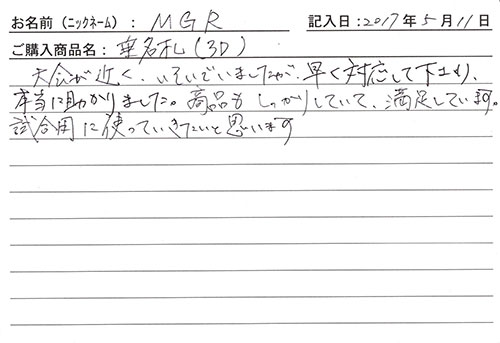 お名前（ニックネーム）：MGR 記入日：2017年5月11日
ご購入商品名：垂名札(3D)
大会が近く、いそいでいましたが、早く対応して下さり、
本当に助かりました。商品もしっかりしていて、満足しています。
試合用に使っていきたいと思います